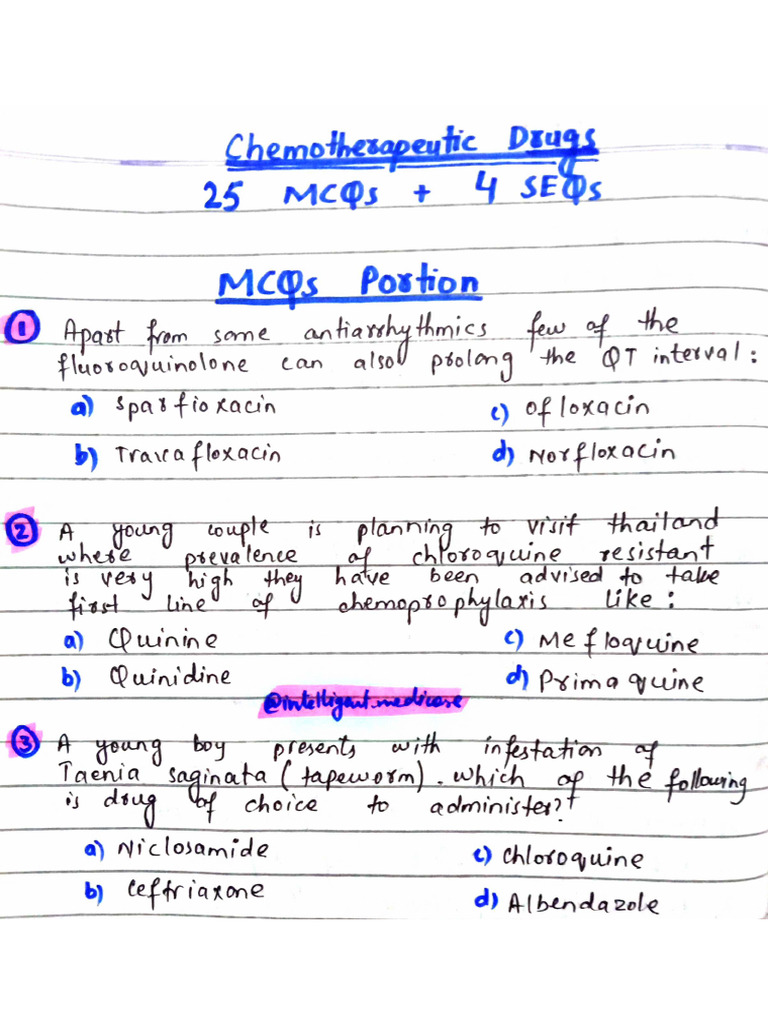 Chemotherapeutic Drugs
25 MCQs + 4 SEQs
MCQs Portion
① Apart from some antiarrhythmics few of the
fluoroquinolone can also prolong the QT interval:
a) Sparfioxacin c) Ofloxacin
b) Travafloxacin d) Norfloxacin
② A young couple is planning to visit thailand
where prevalence of chloroquine resistant
is very high they have been advised to take
first line of chemoprophylaxis like:
a) Quinine c) Mefloquine
b) Quinidine d) Primaquine
@intelligent.medicose
③ A young boy presents with infestation of
Taenia saginata (tapeworm). which of the following
is drug of choice to administer?
a) Niclosamide c) Chloroquine
b) Ceftriaxone d) Albendazole